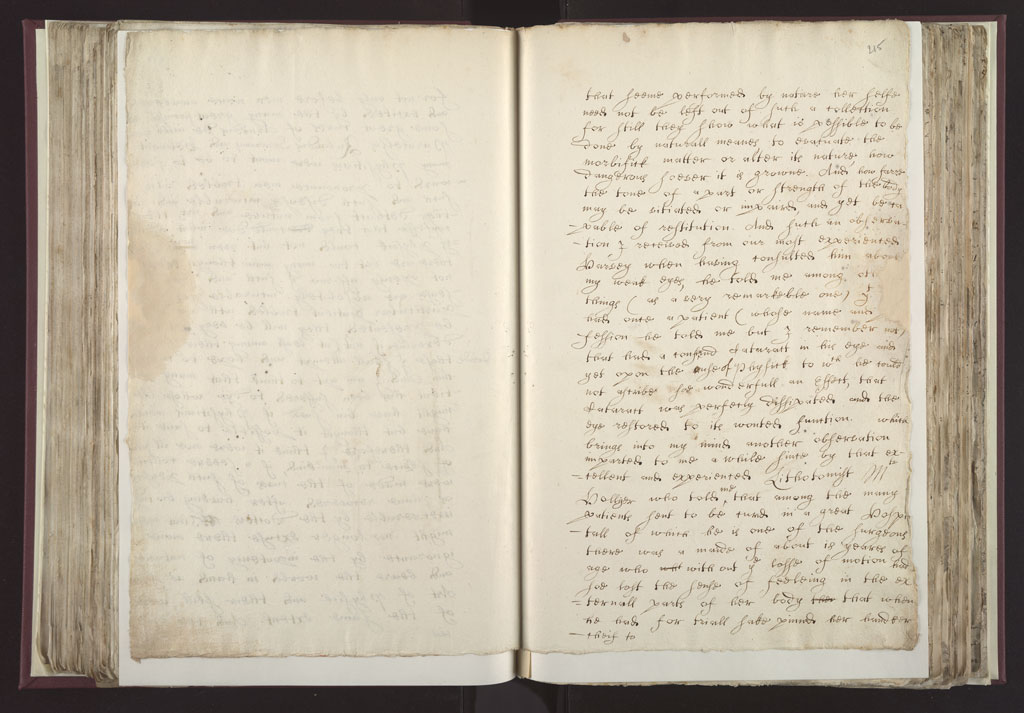 215
that seeme performed by nature her selfe
need not be left out of such a collection
for still they show what is possible to be
done by naturall meanes to evacuate the
morbifick matter or alter its nature how
dangerous soever it is growne. And how farre
the tone of a part or strength of the body
may be vitiated or impaired and yet be ca
-pable of restitution. And such an observa-
-tion I received from our most experienced
Harvey when having consulted him about
my weak eyes, he told me among oth
things (as a very remarkeble one) yt
had once a patient (whose name and
session he told me but I remember not
that had a cataract in his eye and
yet upon the use of Physick to wch he could
not ascribe soe wonderfull an effect, that
Cataract was perfectly dissipated and the
eye restored to its wonted function. which
brings into my mind another observation
imparted to me a while since by that ex
-cellent and experienced Lithotomist Mr
Hollyer who told me that among the many
patients sent to be cured in a great Hospi
-tall of which he is one of the surgeons
there was a maide of about 18 yeares of
age who without ye losse of motion had
soe lost the sense of feeleing in the ex
-ternall parts of her body that when
he had for triall sake pinned her handker
-cheif to